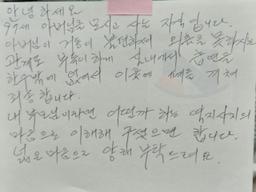 안녕하세요
97세 아버님을 모시고 사는 자식입니다.
아버님이 거동이 불편하셔 외출을 못하시는
관계로 부득이하게 실내에서 흡연을
하실수밖에 없어서 이웃에 폐를 끼쳐
죄송합니다.
내 부모님이라면 어떤가 하는 역지사지의
마음으로 이해해 주셨으면 합니다.
넓은 마음으로 양해 부탁드려요.